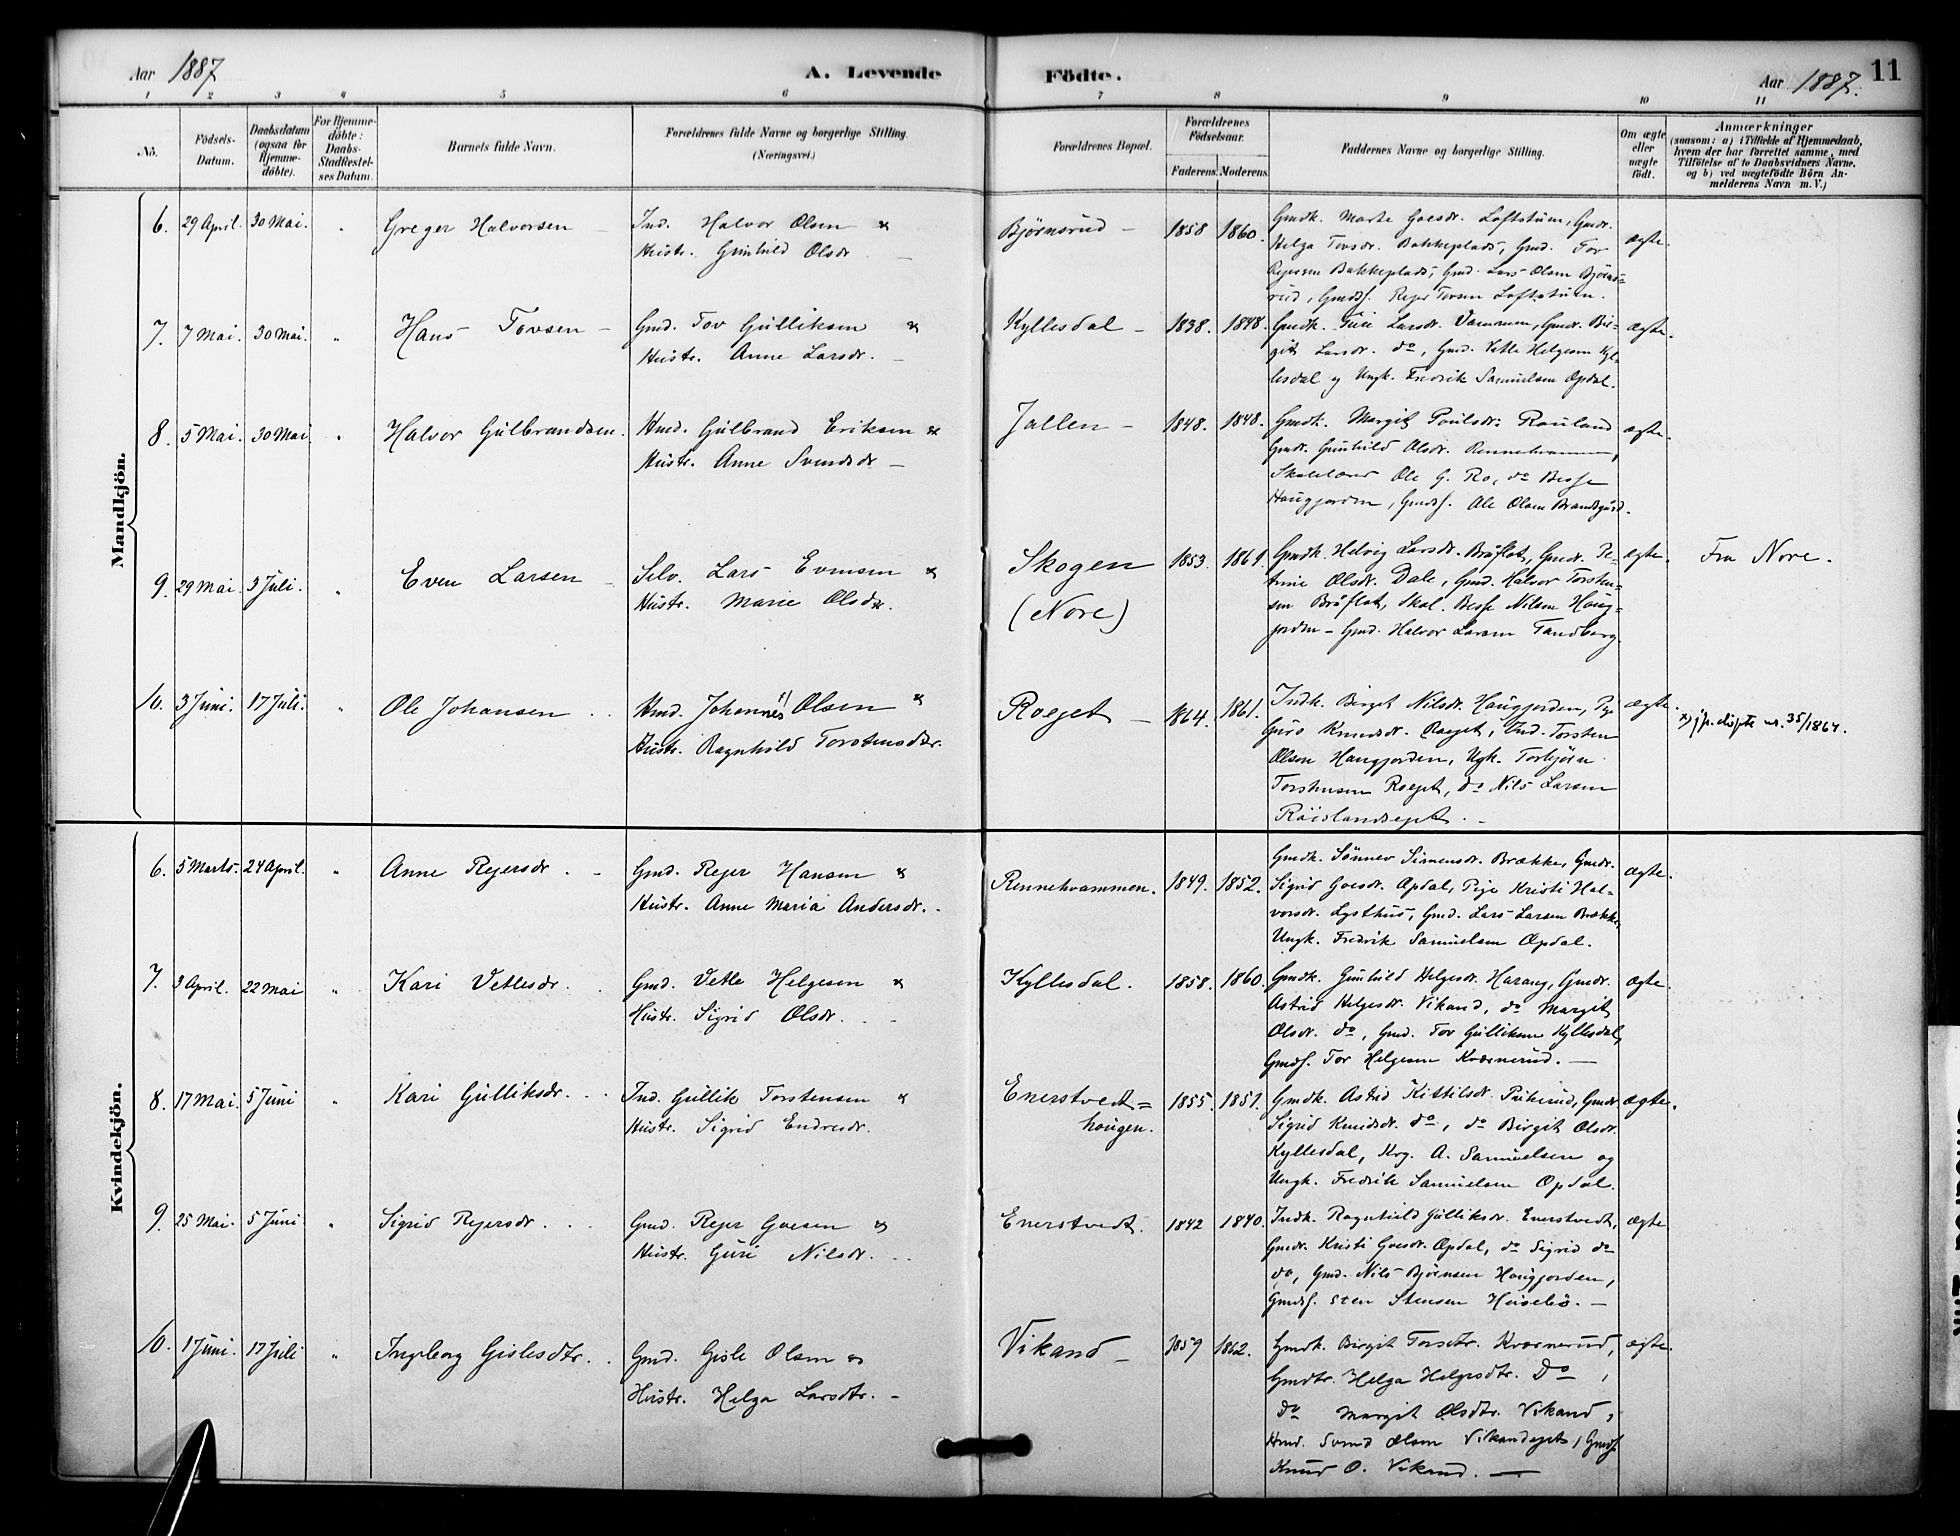 Aar 1887
A. Levende
Födte.
Aar 1887.
11
1 2 3 4 5 6 7 8 9 10 11
No.
Födsels-
Datum.
Daabsdatum
(ogsaa for
Hjemme-
döbte).
For Hjemme-
döbte:
Daabs-
Stadfæstel-
ses Datum.
Barnets fulde Navn.
Forældrenes fulde Navne og borgerlige Stilling.
(Næringsvei.)
Forældrenes Bopæl.
Forældrenes
Födselsaar.
Faderens. Moderens.
Faddernes Navne og borgerlige Stilling.
Om ægte
eller
uægte
födt.
Anmærkninger
(saasom: a) i Tilfælde af Hjemmedaab,
hvem der har forrettet samme, med
Tilföielse af to Daabsvidners Navne,
og b) ved uægtefödte Börn An-
melderens Navn m. V.)
Mandkjön.
6. 29 April. 30 Mai. " Greger Halvorsen –
Ind. Halvor Olsen &
Hustr. Gunhild Olsdr. –
Bjørnsrud – 1858 1860.
Gmdk. Marte Goesdr. Loftstuen, Gmdr.
Helga Torsdr. Bakkeplads, Gmd. Tor
Rejersen Bakkeplads, Gmd. Lars Olsen Bjørns=
rud, Gmds. Rejer Torsen Loftstuen.
ægte.
7. 7 Mai. 30 Mai. " Hans Tovsen –
Gmd. Tov Gulliksen &
Hustr. Anne Larsdr. –
Kyllesdal – 1838. 1848.
Gmdk. Guri Larsdr. Vammen, Gmdr. Bir-
git Larsdr. do, Gmd. Vetle Helgesen Kyl-
lesdal og Ungk. Fredrik Samuelsen Opdal.
ægte.
8. 5 Mai. 30 Mai " Halvor Gulbrandsen.
Hmd. Gulbrand Eriksen &
Hustr. Anne Svendsdr –
Jallen – 1848. 1848.
Gmdk. Margit Poulsdr. Rauland
Gmdr. Gunhild Olsdr. Rennehvammen,
Skolelærer Ole G. Ro, do Besse
Haugjorden, Gmds. Ole Olsen Brandsgård.
ægte.
9. 29 Mai. 3 Juli. " Even Larsen –
Selv. Lars Evensen &
Hustr. Marie Olsdr.
Skogen
(Nore)
1853. 1861.
Gmdk. Helvig Larsdr. Bråflat, Gmdr. Pe-
trine Olsdr. Dale, Gmd. Halvor Torsten=
sen Bråflat, Skol. Besse Nilsen Haug=
jorden – Gmd. Halvor Larsen Tandberg.
ægte.
Fra Nore.
10. 3 Juni. 17 Juli. " Ole Johansen . .
Hmd. Johannes x) Olsen &
Hustr. Ragnhild Torstensdtr.
Roejet – 1864. 1861.
Indk. Birget Nilsdr. Haugjorden, Pige
Guro Knudsdr. Roejet, Ind. Torsten
Olsen Haugjorden, Ugk. Torbjörn
Torstensen Roejet, do Nils Larsen
Röislandsejet. –
ægte.
x) jfr. døpte nr. 35/1864.
Kvindekjön.
6. 5 Marts. 24 April. " Anne Rejersdr. –
Gmd. Rejer Hansen &
Hustr. Anne Maria Andersdr. .
Rennehvammen. 1849. 1852.
Gmdk. Sönnev Simensdr. Brække, Gmdr.
Sigrid Goesdr. Opdal, Pige Kristi Hal-
vorsdr. Lysthus, Gmd. Lars Larsen Brække,
Ungk. Fredrik Samuelsen Opdal.
ægte.
7. 3 April. 22 Mai " Kari Vetlesdr. .
Gmd. Vetle Helgesen &
Hustr. Sigrid Olsdr. . –
Kyllesdal. 1858. 1860.
Gmdk. Gunhild Helgesdr. Harang, Gmdr.
Astrid Helgesdr. Vikand, do Margit
Olsdr. do, Gmd. Tov Gulliksen Kyllesdal,
Gmds. Tor Helgesen Kværnerud. –
ægte.
8. 17 Mai. 5 Juni " Kari Gulliksdr. . .
Ind. Gullik Torstensen &
Hustr. Sigrid Endresdr.
Enerstvedt=
haugen.
1855. 1851.
Gmdk. Astrid Kittilsdr. Prikerud, Gmdr.
Sigrid Knudsdr. do, do Birgit Olsdr.
Kyllesdal, Krg. A. Samuelsen og
Ungk. Fredrik Samuelsen Opdal.
ægte.
9. 25 Mai. 5 Juni " Sigrid Rejersdr. . .
Gmd. Rejer Goesen &
Hustr. Guri Nilsdr. . –
Enerstvedt. 1842 1840.
Indk. Ragnhild Gulliksdr. Enerstvedt,
Gmdr. Kristi Goesdr. Opdal, do Sigrid do
do, Gmd. Nils Bjørnsen Haugjorden,
Gmds. Sten Stensen Husebö. –
ægte
10. 1 Juni. 17 Juli " Ingeborg Gislesdtr. .
Gmd. Gisle Olsen &
Hustr. Helga Larsdtr. –
Vikand – 1859 1862.
Gmdk. Birgit Torsdtr. Kværnerud,
Gmdtr. Helga Helgesdtr. Do ,
do Margit Olsdtr. Vikand,
Hmd. Svend Olsen Vikandejet, Gmds.
Knud O. Vikand. –
ægte.